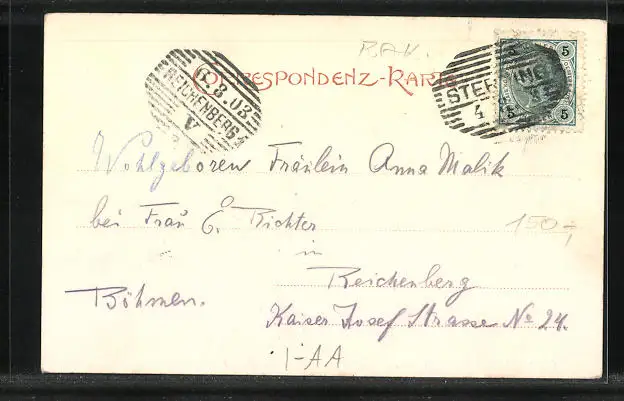 RAV.
CORRESPONDENZ-KARTE
6.8.03
REICHENBERG
V
STERZING
4
5 5
5 5
Wohlgeboren Fräulein Anna Malik
bei Frau G. Richter
150,-
in
Reichenberg
Böhmen.
Kaiser Josef Strasse No 24.
I-AA